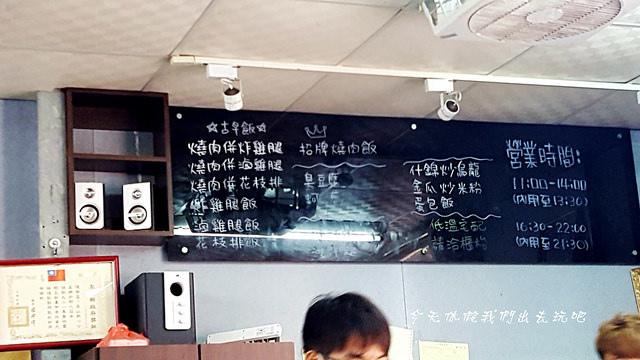 ☆古早飯☆
燒肉併炸雞腿
燒肉併滷雞腿
燒肉併花枝排
炸雞腿飯
滷雞腿飯
花枝排飯
招牌燒肉飯
臭豆腐
什錦炒烏龍
金瓜炒米粉
蛋包飯
低溫宅配
請洽櫃檯
營業時間:
11:00-14:00
(內用至13:30)
16:30-22:00
(內用至21:30)
今天休假我們出去玩吧